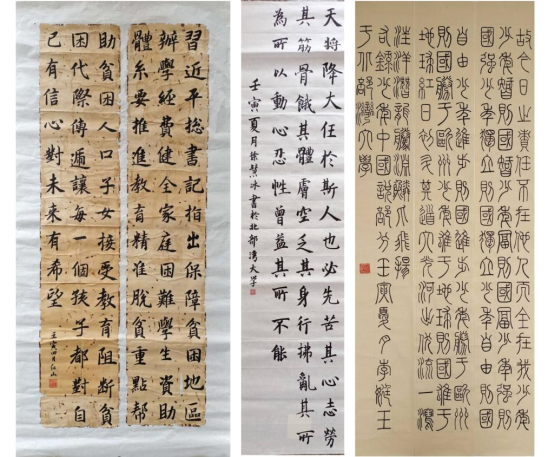 習近平総書記指出保障貧困地區
辦學經費健全家庭困難學生資助
體系要推進教育精准脫貧重點幫
助貧困人口子女接受教育阻斷貧
困代際傳遞讓每一個孩子都對自
己有信心對未來有希望
壬寅四月
天將降大任於斯人也必先苦其心志勞
其筋骨餓其體膚空乏其身行拂亂其所
為所以動心忍性曾益其所不能
壬寅夏月徐慧冰書於北部灣大學
故今日之責任不在他人而全在我少年
少年智則國智少年富則國富少年強則
國強少年獨立則國獨立少年自由則國
自由少年進步則國進步少年勝于歐洲
則國勝于歐洲少年雄于地球則國雄于
地球紅日初升其道大光河出伏流一瀉
汪洋潛龍騰淵鱗爪飛揚
右錄少年中國說部分壬寅夏月李維王
于北部灣大學